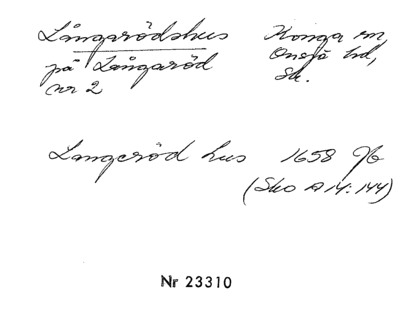 Långarödshus Konga sn,
på Långaröd Onsjö hd,
nr 2 Sk.
Langeröd hus 1658 Jb
(Sko A 14: 144)
Nr 23310